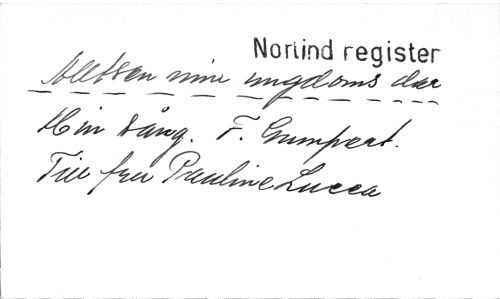 Norlind register
Alltsen mine ungdoms dar
Min sång. F. Gumpert.
Till fru Pauline Lucca